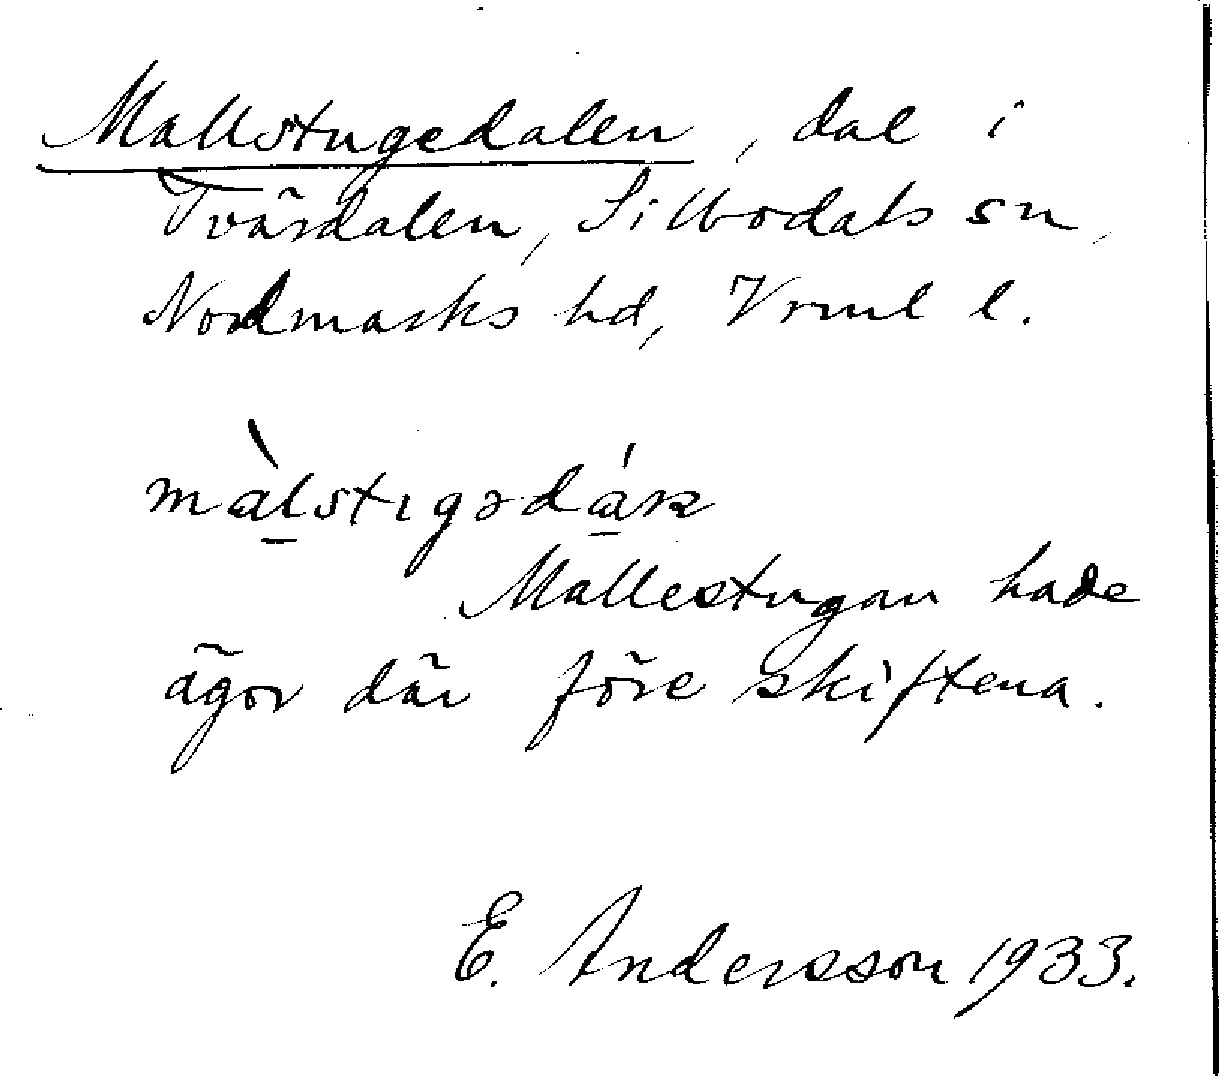 Mallstugedalen, dal i
Tvärdalen, Silbodals sn,
Nordmarks hd, Vrml l.
Mallestugan hade
ägor där före skiftena.
E. Andersson 1933.